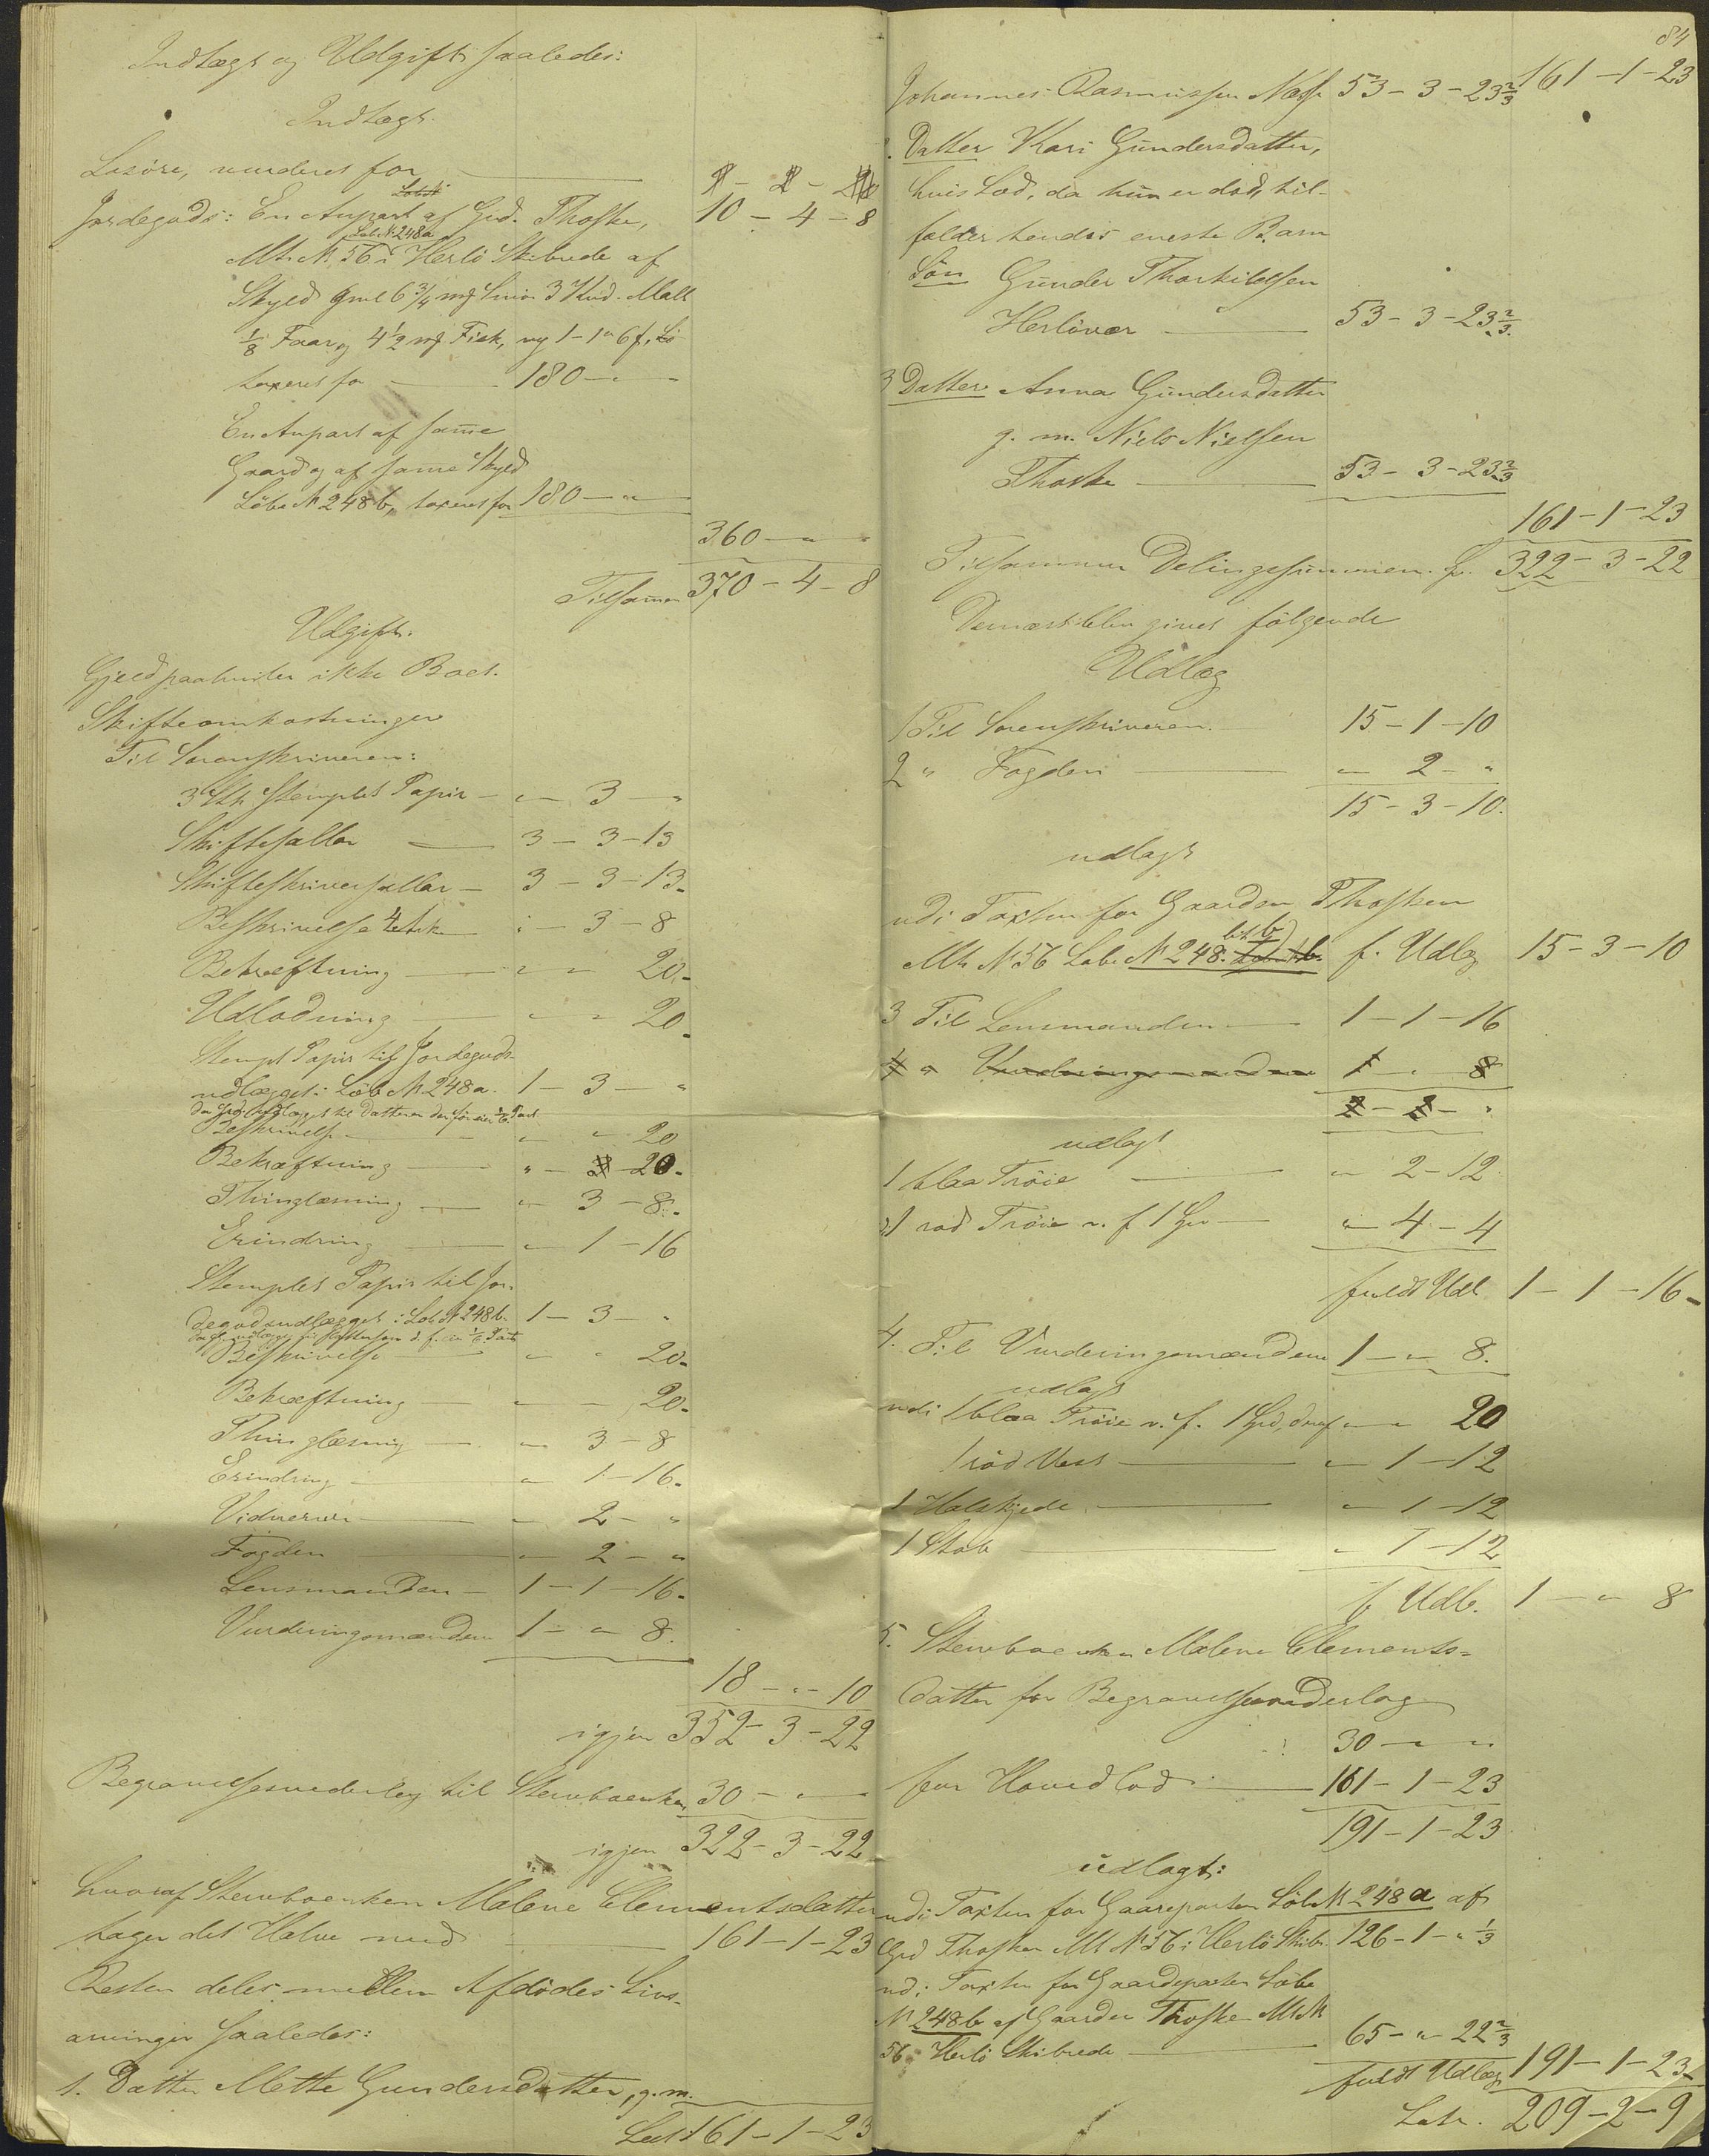 Indtægt og Udgift saaledes:
Indtægt.
Løsøre, vurderet for 10 - 4 - 8
Jordegods: En Anpart af Grd. Thoske,
Løb. N. 248a
Mtr. N. 56 i Herlö Skibrede af
Skyld gml 6 3/4 mf Smör 3 Kand. Malt
1/8 Faar og 4 1/2 mf Fisk, ny 1 - 1 " 6 f,
taxeret for 180 - " - "
En Anpart af same
Gaard og af same Skyld
Løbe N 248b, taxeret for 180 - "
360 - " - "
Tilsamen 370 - 4 - 8
Udgift.
Gjeld paahviler ikke Boet.
Skifteomkostninger
Til Sorenskriveren:
3 Stk Stemplet Papir - " - 3 - "
Skiftesallær 3 - 3 - 13
Skifteskriversallær - 3 - 3 - 13.
Beskrivelse 4 Ark " - 3 - 8
Bekræftning " - " 20.
Udlodning " - " 20.
Stempl Papir til Jordegods-
udlægget i Løb N 248a. 1 - 3 - "
Beskrivelse " - " 20
Bekræftning " - " 20.
Thinglæsning " - 3 - 8.
Erindring " - 1 - 16
Stemplet Papir til Jor-
degodsudlægget i Løb. N 248b. 1 - 3 - "
Beskrivelse " - " 20.
Bekræftning " - " 20.
Thinglæsning " - 3 - 8
Erindring " - 1 - 16.
Vidnerne " - 2 - "
Fogden " - 2 - "
Lensmanden - 1 - 1 - 16.
Vurderingsmændene 1 - " - 8.
18 - " - 10
igjen 352 - 3 - 22
Begravelsesvederlag til Stervboenken 30 - " - "
igjen 322 - 3 - 22
hvoraf Stervboenken Malene Clementsdatter
tager det Halve med 161 - 1 - 23
Resten deles mellem Afdödes Livs-
arvinger saaledes:
1. Datter Mette Gundersdatter, g. m.
Lat. 161 - 1 - 23
84
161 - 1 - 23
Johannes Rasmussen Næsse 53 - 3 - 23 2/3
2. Datter Kari Gundersdatter,
hvis Lod, da hun er död, til-
falder hendes eneste Barn
Sön Gunder Thorkildsen
Herlövær 53 - 3 - 23 2/3.
3 Datter Anna Gundersdatter
g. m. Niels Nielsen
Thoske 53 - 3 - 23 2/3
161 - 1 - 23
Tilsammen Delingssummen. 322 - 3 - 22
Dernæst bliver givet fölgende
Udlæg
1 Til Sorenskriveren. 15 - 1 - 10
2 " Fogden " 2 - "
15 - 3 - 10.
udlagt
udi Taxten for Gaarden Thosken
Mtr. N 56 Løbe N 248. litr b) f. Udlæg 15 - 3 - 10
3 Til Lensmanden 1 - 1 - 16
4 " Vurderingsmændene 1 " 8
2 - 2 - "
udlagt
1 blaa Tröie " 2 - 12
1 rød Tröie v. f 1 Grd " 4 - 4
fuldt Udl. 1 - 1 - 16.
4. Til Vurderingsmændene 1 - " 8.
udlagt
udi 1 blaa Tröie v. f. 1 Grd, deraf " - " 20
1 röd Vest " - 1 - 12
1 Halskjede " - 1 - 12
1 Stob " - 1 - 12
f. Udl. 1 - " 8
5. Stervboenken Malene Clements-
datter for Begravelsesvederlag
30 - " - "
for Hovedlod 161 - 1 - 23
191 - 1 - 23
udlagt:
udi Taxten for Gaardparten Löbe N 248a af
Grd Thosken Mt N 56 i Herlö Skibr. 126 - 1 - " 1/3
udi Taxten for Gaardparten Löbe
N 248b af Gaarden Thoske Mt N
56 Herlö Skibrede 65 - " - 22 2/3
fuldt Udlæg 191 - 1 - 23
Latr. 209 - 2 - 9